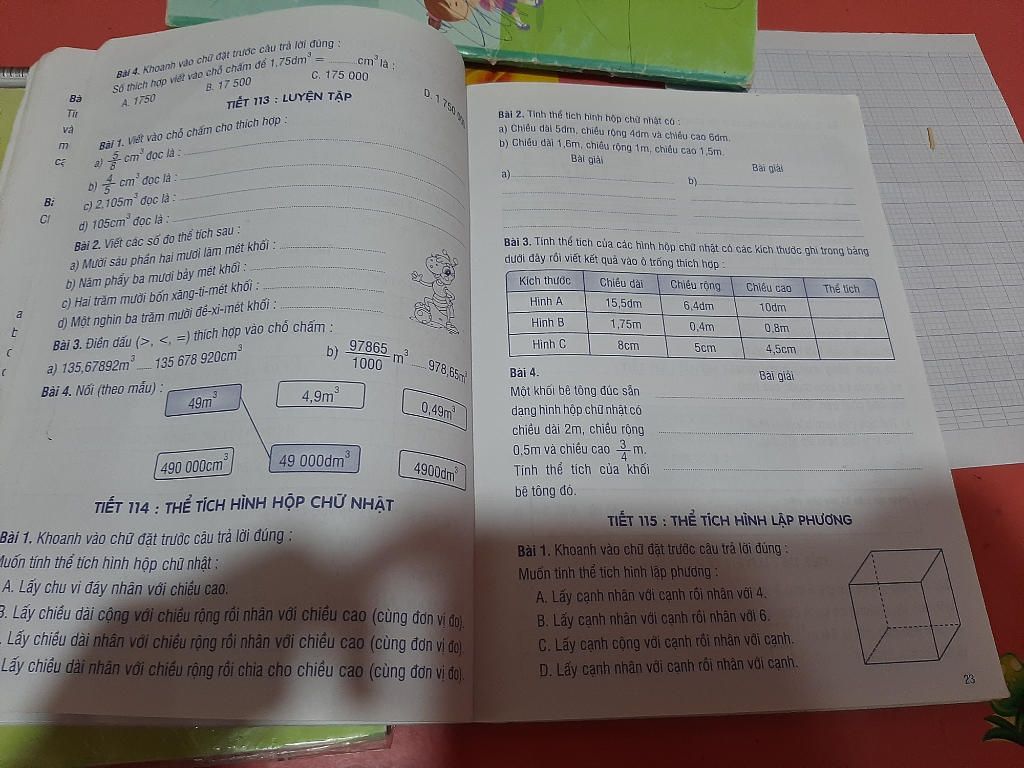 Bài 4. Khoanh vào chữ đặt trước câu trả lời đúng :
Số thích hợp viết vào chỗ chấm để 1,75dm³ = ............ cm³ là :
A. 1750 B. 17 500 C. 175 000 D. 1 750 000
TIẾT 113 : LUYỆN TẬP
Bài 1. Viết vào chỗ chấm cho thích hợp :
a) 5/8 cm³ đọc là :
b) 4/5 cm³ đọc là :
c) 2,105m³ đọc là :
d) 105cm³ đọc là :
Bài 2. Viết các số đo thể tích sau :
a) Mười sáu phần hai mươi lăm mét khối :
b) Năm phẩy ba mươi bảy mét khối :
c) Hai trăm mười bốn xăng-ti-mét khối :
d) Một nghìn ba trăm mười đề-xi-mét khối :
Bài 3. Điền dấu (>, <, =) thích hợp vào chỗ chấm :
a) 135,67892m³ ...... 135 678 920cm³ b) 97865/1000 m³ ...... 978,65m³
Bài 4. Nối (theo mẫu) :
49m³ 4,9m³ 0,49m³
490 000cm³ 49 000dm³ 4900dm³
TIẾT 114 : THỂ TÍCH HÌNH HỘP CHỮ NHẬT
Bài 1. Khoanh vào chữ đặt trước câu trả lời đúng :
Muốn tính thể tích hình hộp chữ nhật :
A. Lấy chu vi đáy nhân với chiều cao.
B. Lấy chiều dài cộng với chiều rộng rồi nhân với chiều cao (cùng đơn vị đo).
Lấy chiều dài nhân với chiều rộng rồi nhân với chiều cao (cùng đơn vị đo).
Lấy chiều dài nhân với chiều rộng rồi chia cho chiều cao (cùng đơn vị đo).
Bài 2. Tính thể tích hình hộp chữ nhật có :
a) Chiều dài 5dm, chiều rộng 4dm và chiều cao 6dm.
b) Chiều dài 1,6m, chiều rộng 1m, chiều cao 1,5m.
Bài giải Bài giải
a) b)
Bài 3. Tính thể tích của các hình hộp chữ nhật có các kích thước ghi trong bảng
dưới đây rồi viết kết quả vào ô trống thích hợp :
Kích thước Chiều dài Chiều rộng Chiều cao Thể tích
Hình A 15,5dm 6,4dm 10dm
Hình B 1,75m 0,4m 0,8m
Hình C 8cm 5cm 4,5cm
Bài 4.
Bài giải
Một khối bê tông đúc sẵn
dạng hình hộp chữ nhật có
chiều dài 2m, chiều rộng
0,5m và chiều cao 3/4 m.
Tính thể tích của khối
bê tông đó.
TIẾT 115 : THỂ TÍCH HÌNH LẬP PHƯƠNG
Bài 1. Khoanh vào chữ đặt trước câu trả lời đúng :
Muốn tính thể tích hình lập phương :
A. Lấy cạnh nhân với cạnh rồi nhân với 4.
B. Lấy cạnh nhân với cạnh rồi nhân với 6.
C. Lấy cạnh cộng với cạnh rồi nhân với cạnh.
D. Lấy cạnh nhân với cạnh rồi nhân với cạnh.
23